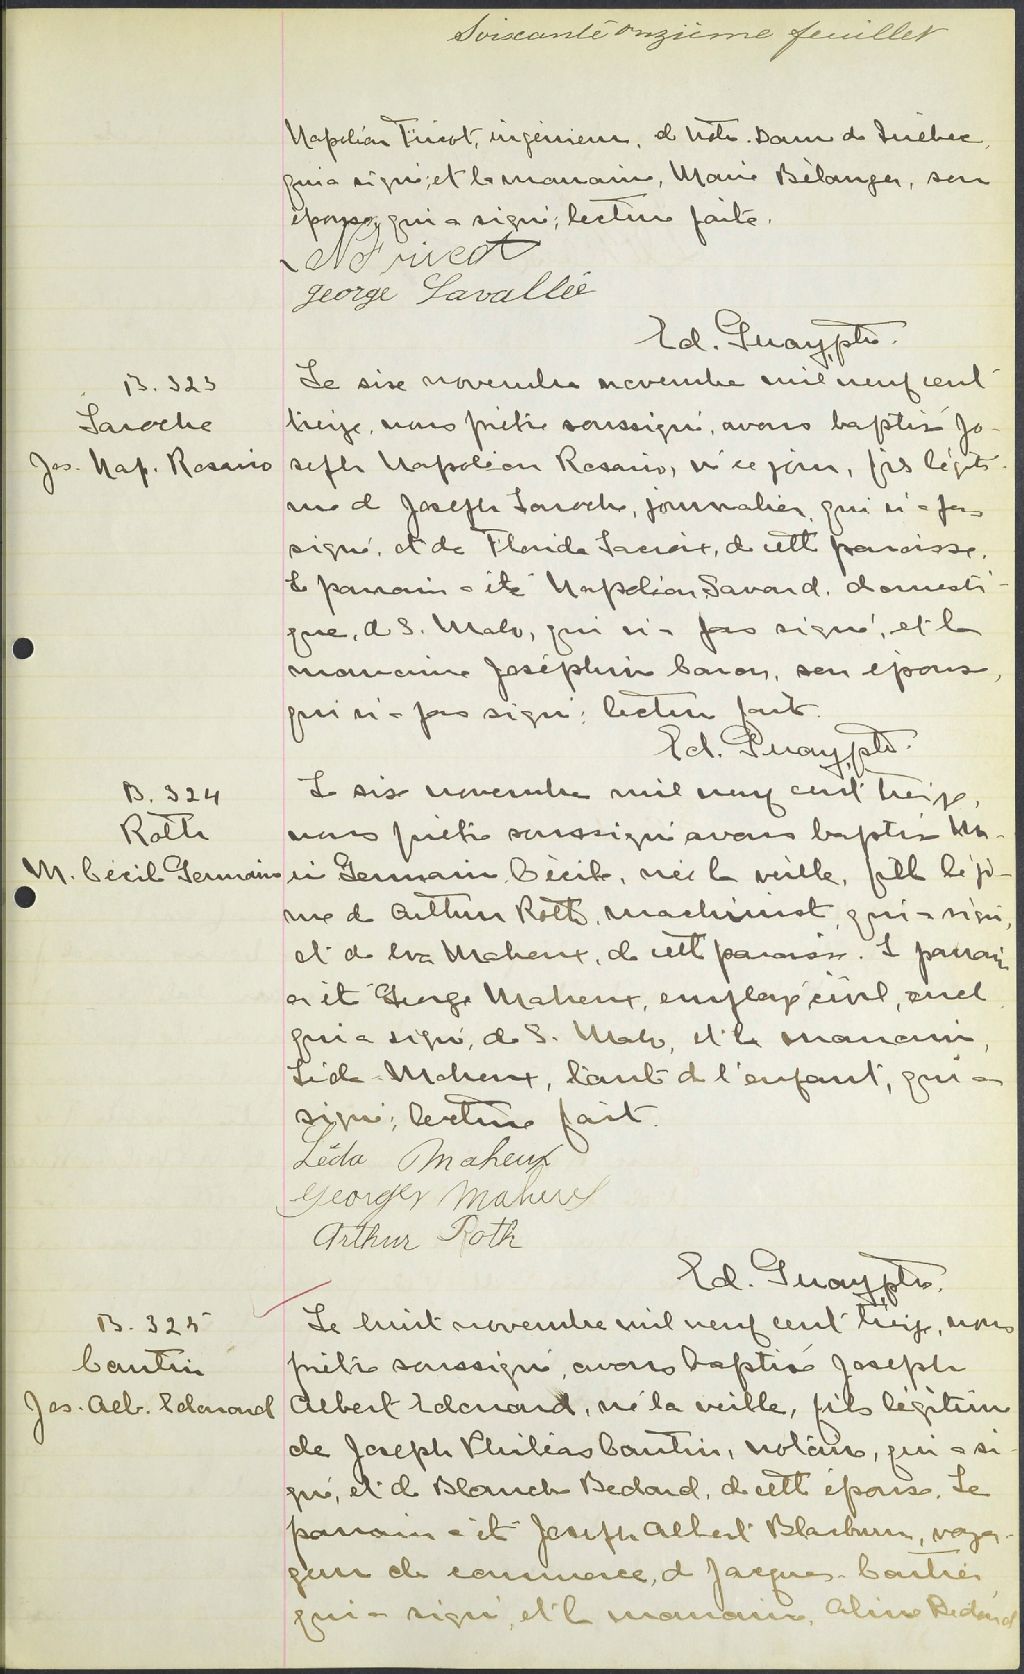 Soixante onzième feuillet
Napoléon Fiscot, ingénieur, de Notre-Dame de Québec,
qui a signé; et la marraine, Marie Bélanger, son
épouse, qui a signé; lecture faite.
George Lavallée
Ed. Guay, ptre.
B. 323
Laroche
Jos. Nap. Rosario
Le six novembre novembre mil neuf cent
treize, nous prêtre soussigné, avons baptisé Jo-
seph Napoléon Rosario, né ce jour, fils légiti-
me de Joseph Laroche, journalier, qui n'a pas
signé, et de Florida Lacroix, de cette paroisse.
Le parrain a été Napoléon Savard, domesti-
que, de S. Malo, qui n'a pas signé, et la
marraine Joséphine Caron, son épouse,
qui n'a pas signé; lecture faite.
Ed. Guay, ptre.
B. 324
Roth
M. Cécile Germaine
Le six novembre mil neuf cent treize,
nous prêtre soussigné avons baptisé Ma-
rie Germaine Cécile, née la veille, fille légiti-
me de Arthur Roth, machiniste, qui a signé,
et de Eva Maheux, de cette paroisse. Le parrain
a été George Maheux, employé civil,
qui a signé, de S. Malo, et la marraine,
Léda Maheux, tante de l'enfant, qui a
signé; lecture faite.
Léda Maheux
Georges Maheux
Arthur Roth
Ed. Guay, ptre.
B. 325
Cantin
Jos. Alb. Edouard
Le huit novembre mil neuf cent treize, nous
prêtre soussigné, avons baptisé Joseph
Albert Edouard, né la veille, fils légitime
de Joseph Philéas Cantin, notaire, qui a si-
gné, et de Blanche Bedard, de cette épouse. Le
parrain a été Joseph Albert Blackburn, voya-
geur de commerce, de Jacques-Cartier
qui a signé, et la marraine, Aline Bedard